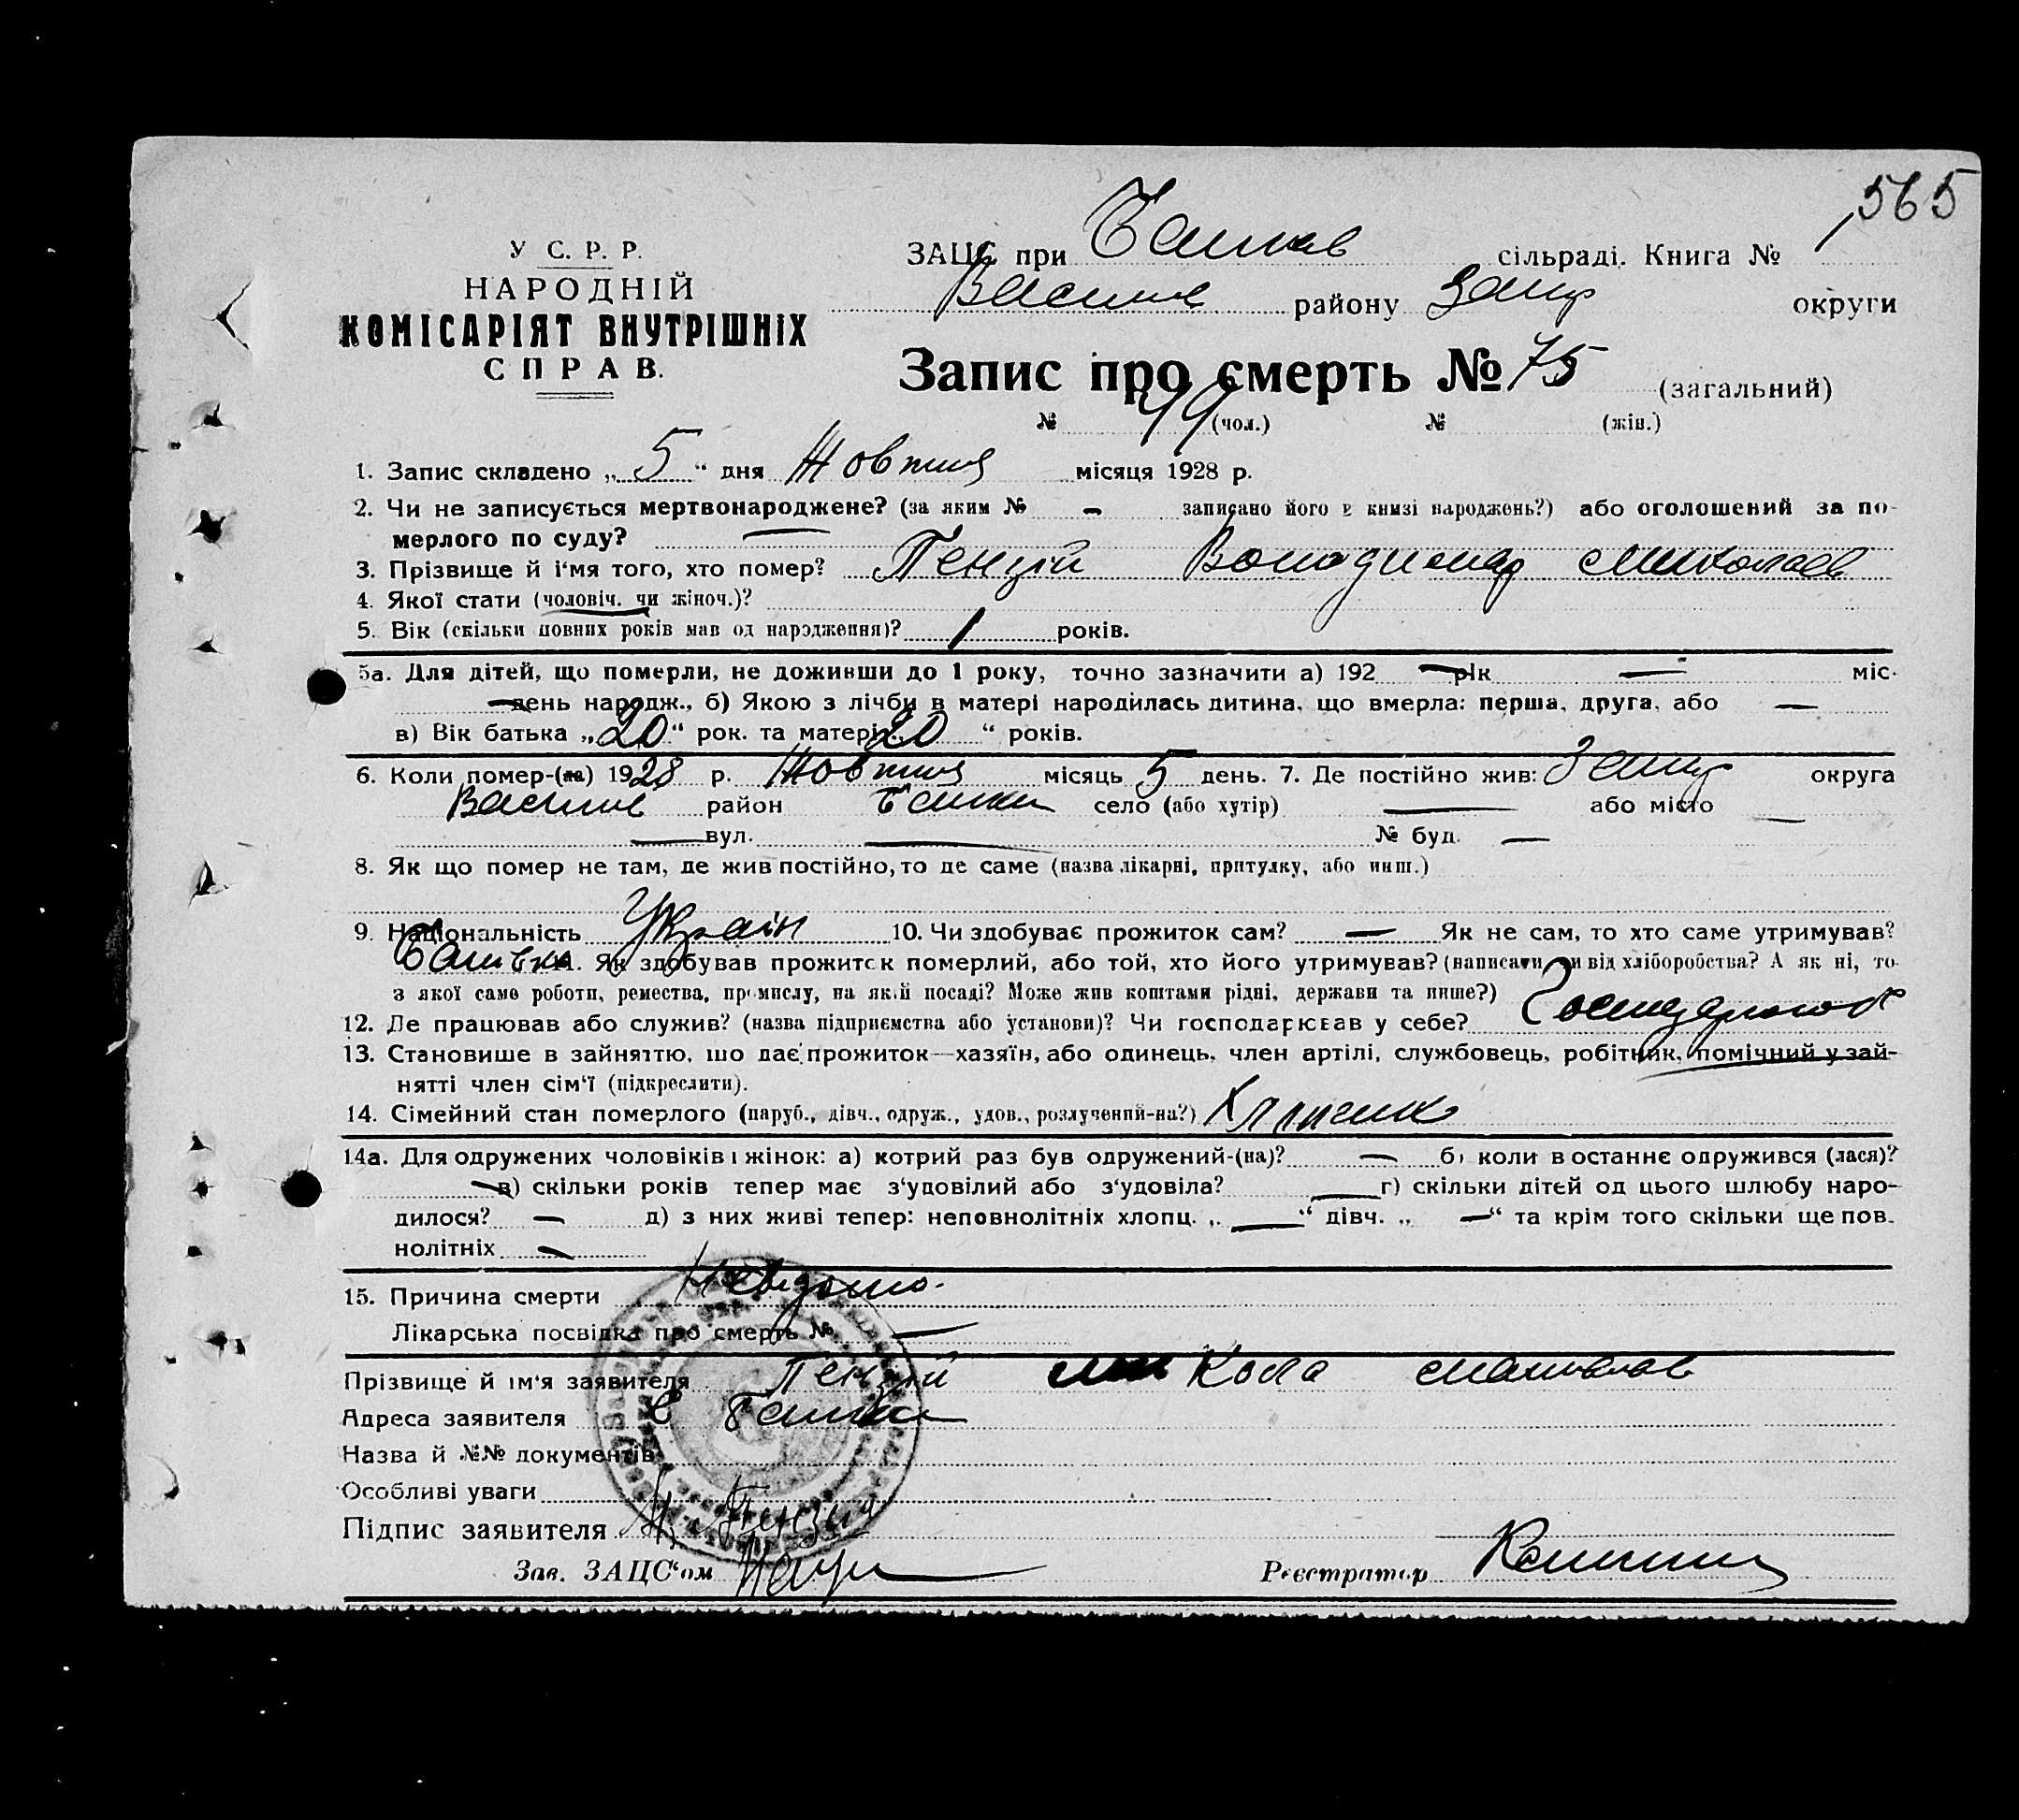 565
У С. Р. Р.
НАРОДНІЙ
КОМІСАРІЯТ ВНУТРІШНІХ
СПРАВ.
ЗАЦС при сільраді. Книга №
Васил району Запор округи
Запис про смерть № 75 (загальний)
№ (чол.) № (жін.)
1. Запис складено „ 5 “ дня Жовтня місяця 1928 р.
2. Чи не записується мертвонароджене? (за яким № – записано його в книзі народжень?) або оголошений за по-
мерлого по суду? —
3. Прізвище й і‘мя того, хто помер? Пензій Володимир Миколаєв
4. Якої стати (чоловіч. чи жіноч.)?
5. Вік (скільки повних років мав од народження)? 1 років.
5а. Для дітей, що померли, не доживши до 1 року, точно зазначити а) 192 — рік — міс.
— день народж., б) Якою з лічби в матері народилась дитина, що вмерла: перша, друга, або —
в) Вік батька „ 20 “ рок. та матері „ 20 “ років.
6. Коли помер-(ла) 1928 р. Жовтня місяць 5 день. 7. Де постійно жив: Запор округа
Васил район село (або хутір) — або місто —
— вул. — № буд. —
8. Як що помер не там, де жив постійно, то де саме (назва лікарні, притулку, або инш.)
9. Національність Україн 10. Чи здобуває прожиток сам? — Як не сам, то хто саме утримував?
Батько 11. Як здобував прожиток померлий, або той, хто його утримував? (написати чи від хліборобства? А як ні, то
з якої саме роботи, ремества, промислу, на якій посаді? Може жив коштами рідні, держави та инше?)
12. Де працював або служив? (назва підприємства або установи)? Чи господарював у себе?
13. Становище в зайняттю, що дає прожиток—хазяїн, або одинець, член артілі, службовець, робітник, помічний у зай-
нятті член сім‘ї (підкреслити).
14. Сімейний стан померлого (паруб., дівч., одруж., удов., розлучений-на?) Хлопчик
14а. Для одружених чоловіків і жінок: а) котрий раз був одружений-(на)? — б) коли востаннє одружився (лася)?
— в) скільки років тепер має з‘удовілий або з‘удовіла? — г) скільки дітей од цього шлюбу наро-
дилося? — д) з них живі тепер: неповнолітніх хлопц. „ — “ дівч. „ — “ та крім того скільки ще пов-
нолітніх —
15. Причина смерти Невідомо.
Лікарська посвідка про смерть № —
Прізвище й ім‘я заявителя Пензій Микола
Адреса заявителя с
Назва й №№ документів
Особливі уваги
Підпис заявителя М. Пензий
Зав. ЗАЦС‘ом Реєстратор